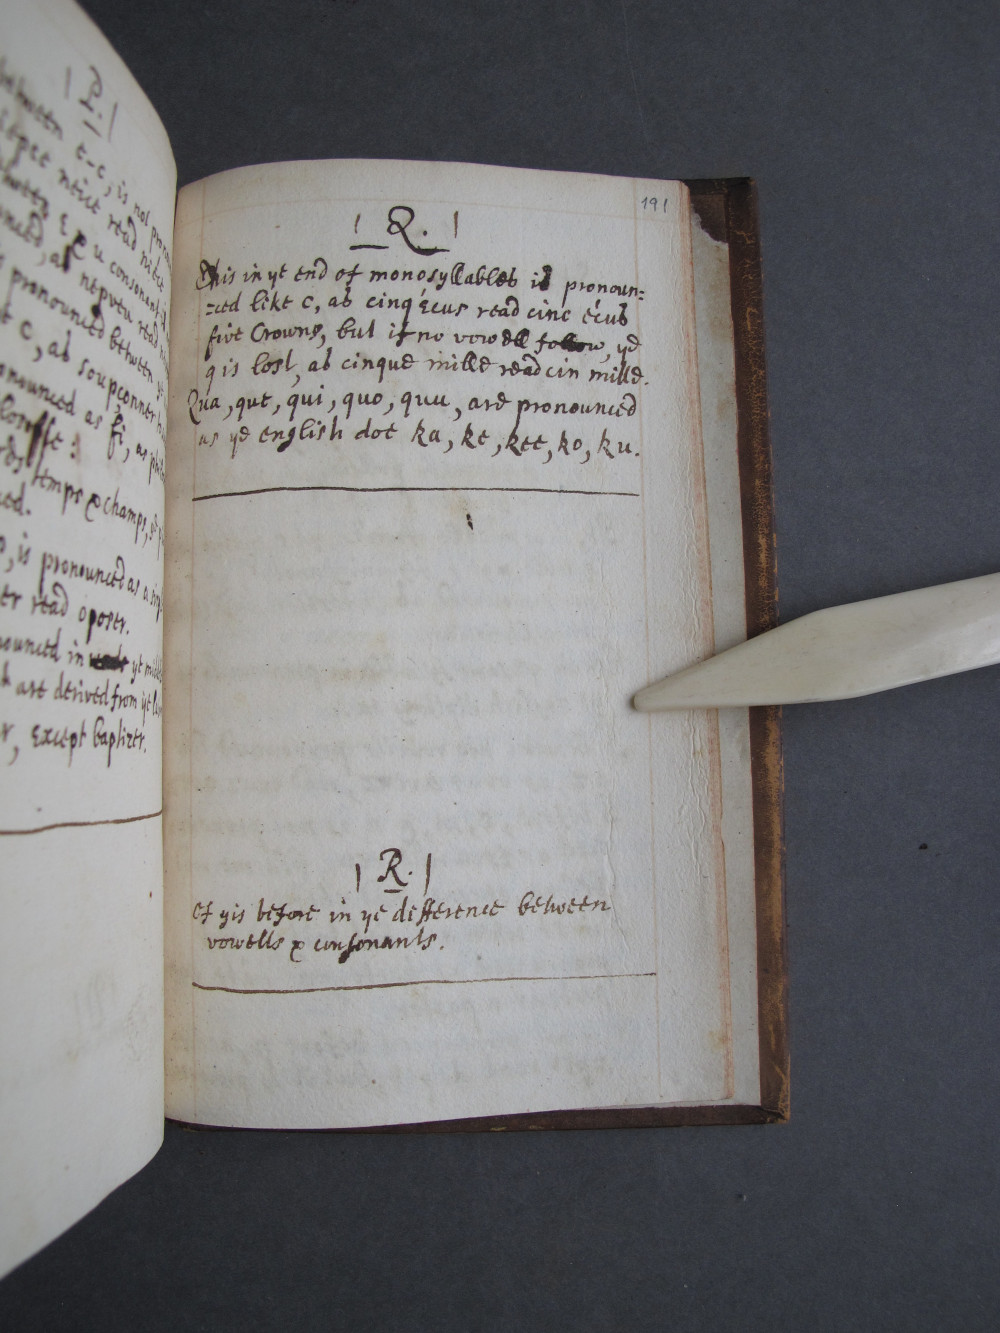 |P.|
between e-c, is not
niece read niece
& u consonant
as nepveu read
pronounced between ye
c, as soupçonner
pronounced as fi, as
temps & champs, ye p
ced.
p, is pronounced as a
er read oposer.
nounced in ye midd
t are derived from ye
r, except baptizer.
191
|Q.|
This in ye end of monosyllables is pronoun=
=ced like c, as cinq écus read cinc écus
five Crowns, but if no vowell follow, ye
q is lost, as cinque mille read cin mille.
Qua, que, qui, quo, quu, are pronounced
as ye english doe ka, ke, kee, ko, ku.
|R.|
Of yis before in ye difference between
vowells & consonants.